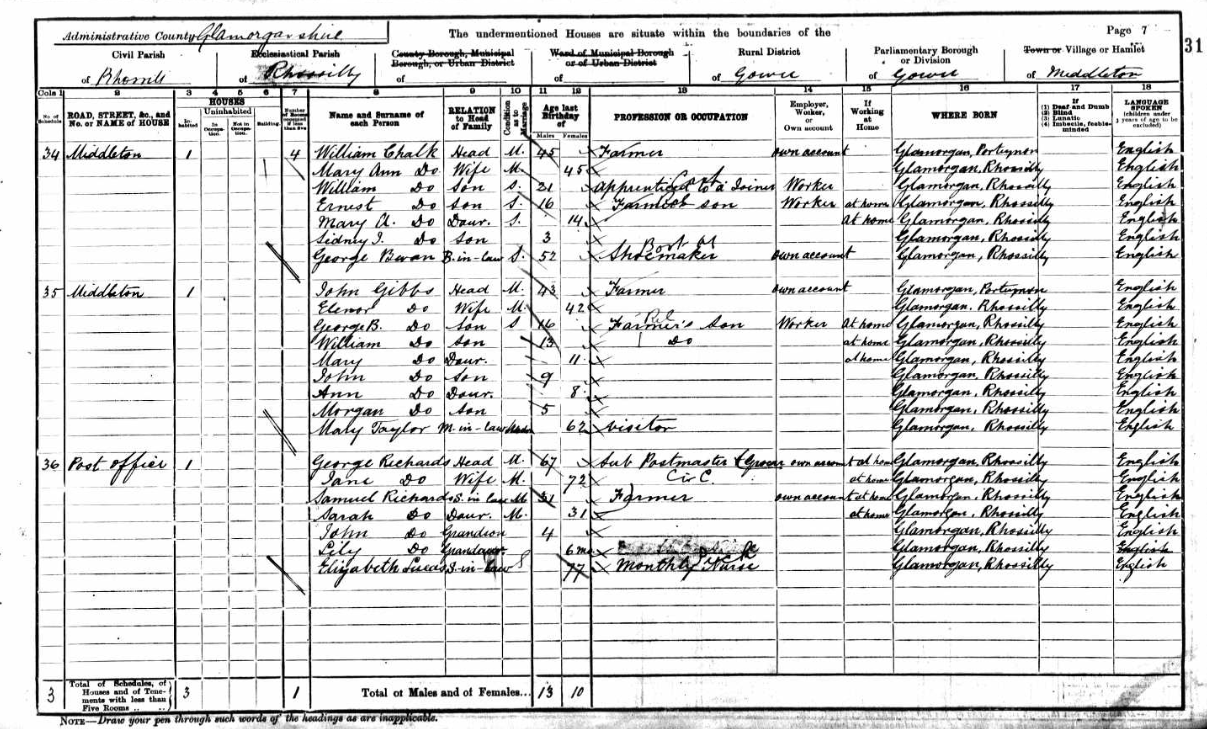 Administrative County Glamorganshire The undermentioned Houses are situate within the boundaries of the Page 7
31
Civil Parish Ecclesiastical Parish County Borough, Municipal Borough, or Urban District Ward of Municipal Borough or of Urban District Rural District Parliamentary Borough or Division Town or Village or Hamlet
of of Rhossilly of of of Gower of Gower of Middleton
Cols 1 2 3 4 5 6 7 8 9 10 11 12 13 14 15 16 17 18
No. of Schedule ROAD, STREET, &c., and No. or NAME of HOUSE HOUSES Inhabited Uninhabited In Occupation Not in Occupation Building Number of Rooms occupied if less than five Name and Surname of each Person RELATION to Head of Family Condition as to Marriage Age last Birthday of Males Females PROFESSION OR OCCUPATION Employer, Worker, or Own account If Working at Home WHERE BORN If (1) Deaf and Dumb (2) Blind (3) Lunatic (4) Imbecile, feeble-minded LANGUAGE SPOKEN (children under 3 years of age to be excluded)
34 Middleton 1 4 William Chalk Head M. 45 Farmer own account Glamorgan, Porteynon English
Mary Ann Do Wife M. 45 Glamorgan, Rhossilly English
William Do Son S. 21 Apprenticed to a Joiner Worker Glamorgan, Rhossilly English
Ernest Do Son S. 16 son Worker at home Glamorgan, Rhossilly English
Mary A. Do Daur. S. 14 At home Glamorgan, Rhossilly English
Sidney J. Do Son 3 Glamorgan, Rhossilly English
George Bevan B.in-law S. 52 Shoemaker own account Glamorgan, Rhossilly English
35 Middleton 1 John Gibbs Head M. 43 Farmer own account Glamorgan, Porteynon English
Elenor Do Wife M. 42 Glamorgan, Rhossilly English
George B. Do Son S 16 Farmer's Son Worker At home Glamorgan, Rhossilly English
William Do Son 13 Do at home Glamorgan, Rhossilly English
Mary Do Daur. 11 at home Glamorgan, Rhossilly English
John Do Son 9 Glamorgan, Rhossilly English
Ann Do Daur. 8 Glamorgan, Rhossilly English
Morgan Do Son 5 Glamorgan, Rhossilly English
Mary Taylor M.in-law 62 visitor Glamorgan, Rhossilly English
36 Post office 1 George Richards Head M. 67 Sub Postmaster & Grocer own account at home Glamorgan, Rhossilly English
Jane Do Wife M. 72 at home Glamorgan, Rhossilly English
Samuel Richards S. in law M 31 Farmer own account at home Glamorgan, Rhossilly English
Sarah Do Daur. M. 31 at home Glamorgan, Rhossilly English
John Do Grandson 4 Glamorgan, Rhossilly English
Lily Do Grandaur. 6 mo Glamorgan, Rhossilly English
Elizabeth Lucas S.in-law S 77 Monthly Nurse Glamorgan, Rhossilly English
3 Total of Schedules, of Houses and of Tenements with less than Five Rooms 3 1 Total of Males and of Females... 13 10
NOTE—Draw your pen through such words of the headings as are inapplicable.